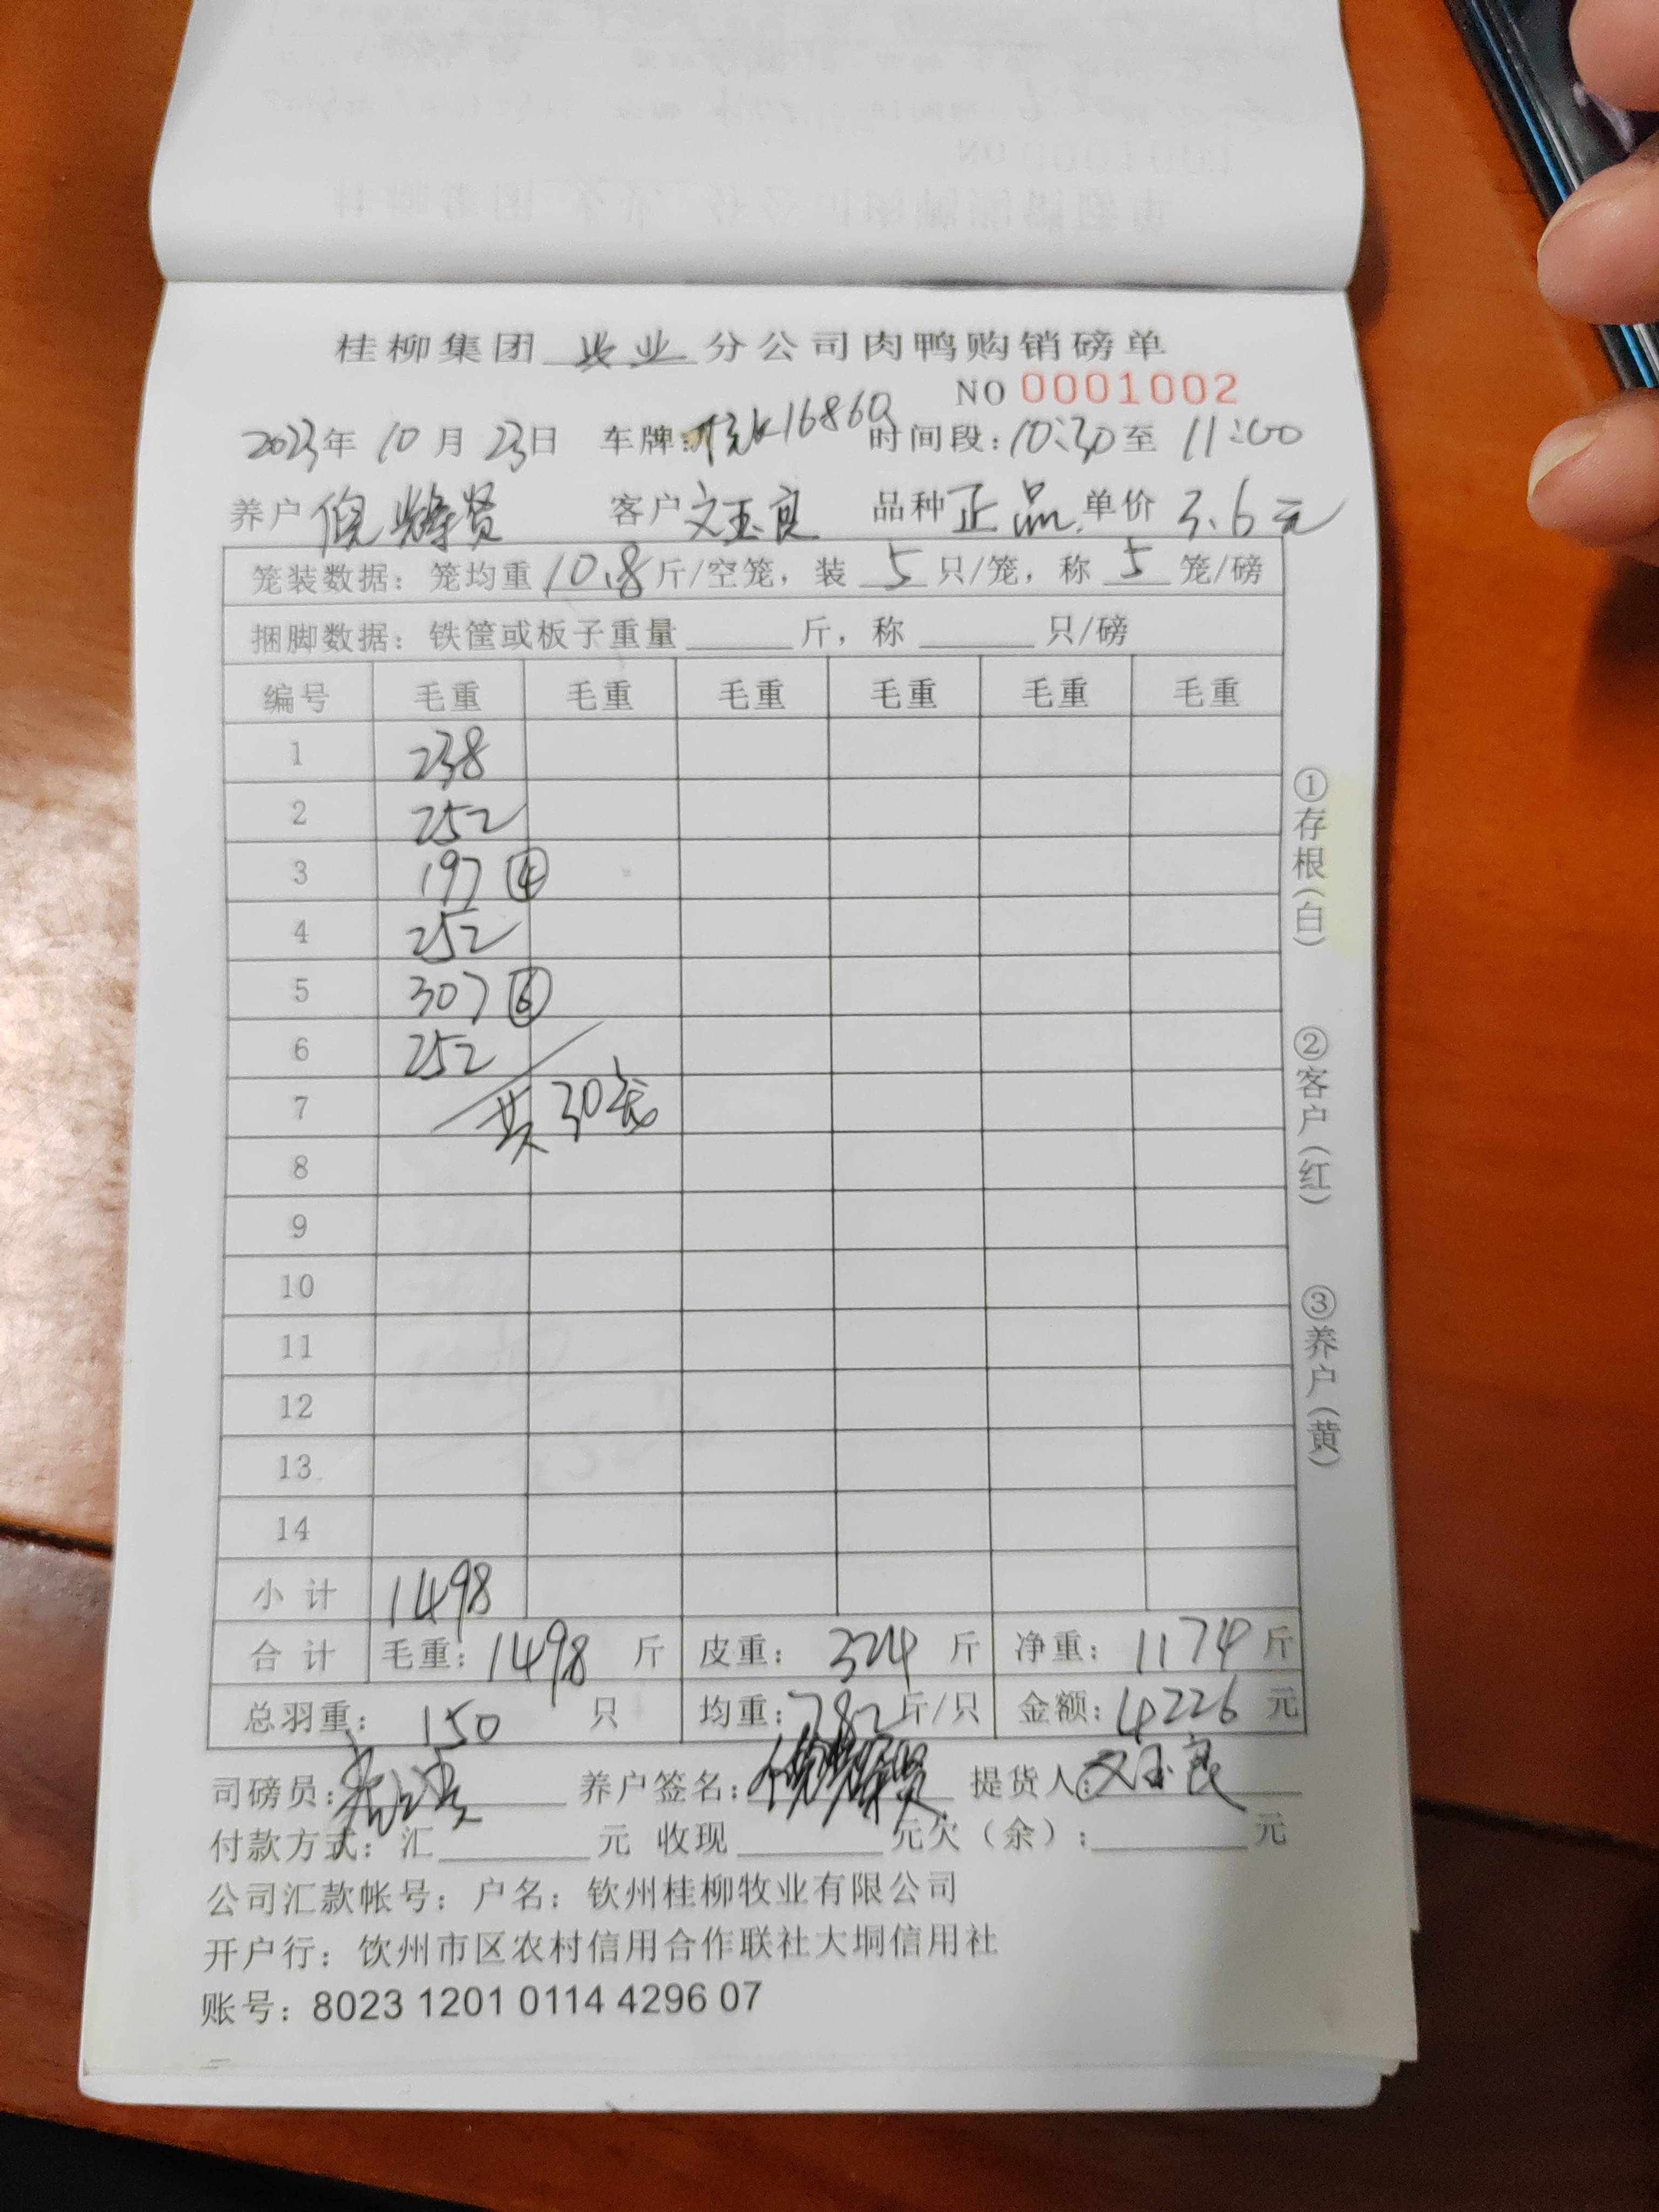 桂柳集团 兴业 分公司肉鸭购销磅单
NO 0001002
2023年 10月 23日 车牌:桂K16860 时间段:10:30至 11:00
养户 倪耀贤 客户 文玉良 品种 正品 单价 3.6元
笼装数据: 笼均重 10.8 斤/空笼, 装 5 只/笼, 称 5 笼/磅
捆脚数据: 铁筐或板子重量 斤, 称 只/磅
编号 毛重 毛重 毛重 毛重 毛重 毛重
1 238
2 252
3 197 ④
4 252
5 307 ⑥
6 252
7 共30笼
8
9
10
11
12
13
14
小 计 1498
合 计 毛重: 1498 斤 皮重: 324 斤 净重: 1174 斤
总羽重: 150 只 均重: 782 斤/只 金额: 4226 元
司磅员: 养户签名: 倪耀贤 提货人: 文玉良
付款方式: 汇 元 收现 元欠(余): 元
公司汇款帐号: 户名: 钦州桂柳牧业有限公司
开户行: 钦州市区农村信用合作联社大垌信用社
账号: 8023 1201 0114 4296 07
①存根(白) ②客户(红) ③养户(黄)